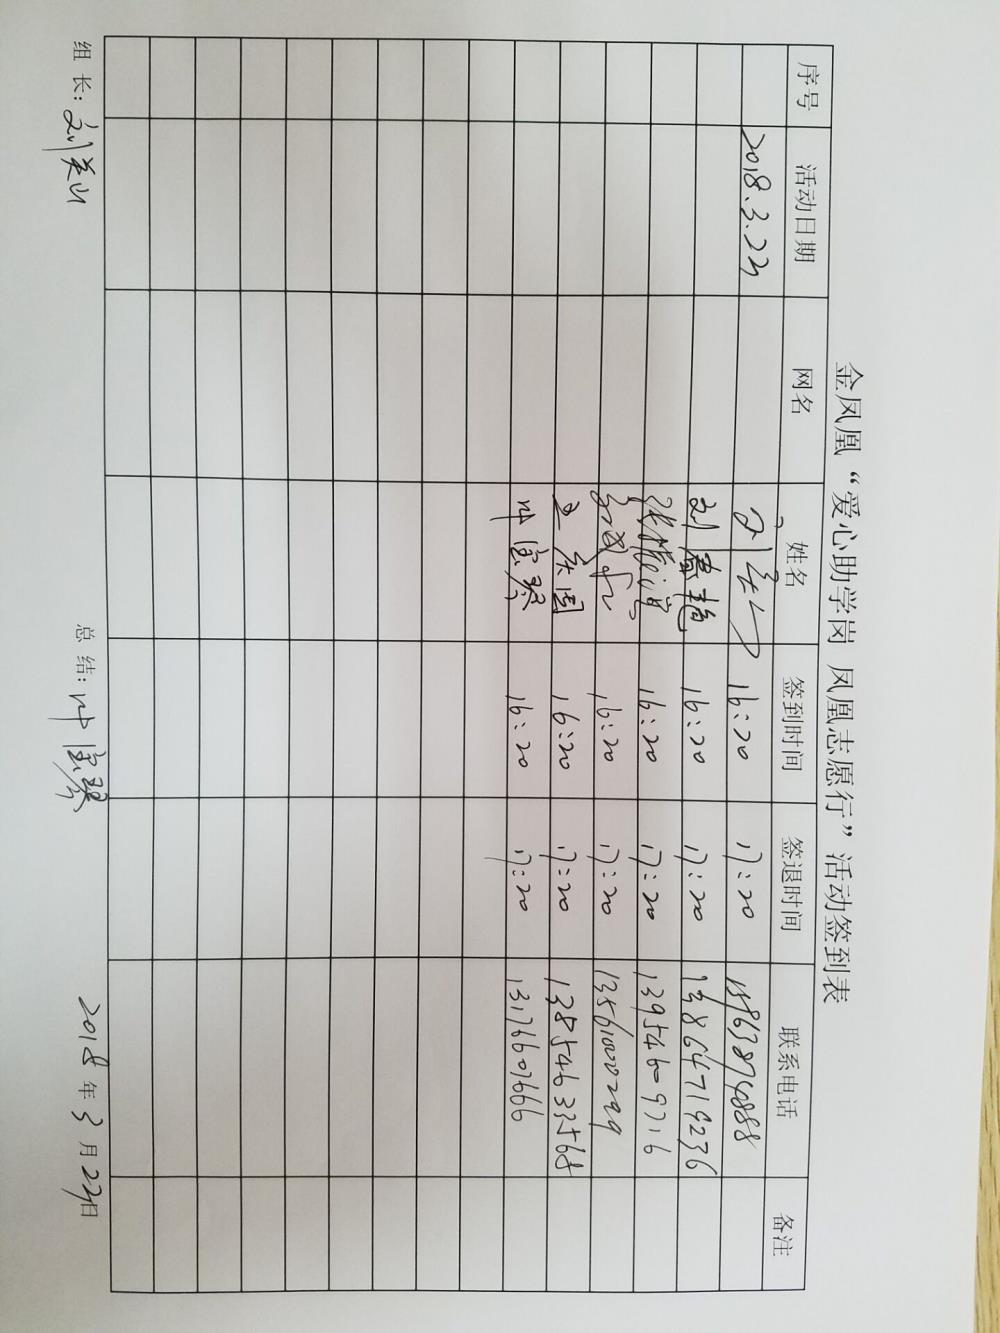 金凤凰“爱心助学岗 凤凰志愿行”活动签到表
序号 活动日期 网名 姓名 签到时间 签退时间 联系电话 备注
2018.3.23 16:20 17:20 15963874888
刘春艳 16:20 17:20 13864719236
16:20 17:20 13954609716
16:20 17:20
16:20 17:20 13854633568
宝琴 16:20 17:20 13176607666
组 长: 刘英山 总 结: 宝琴 2018 年 3 月 23 日